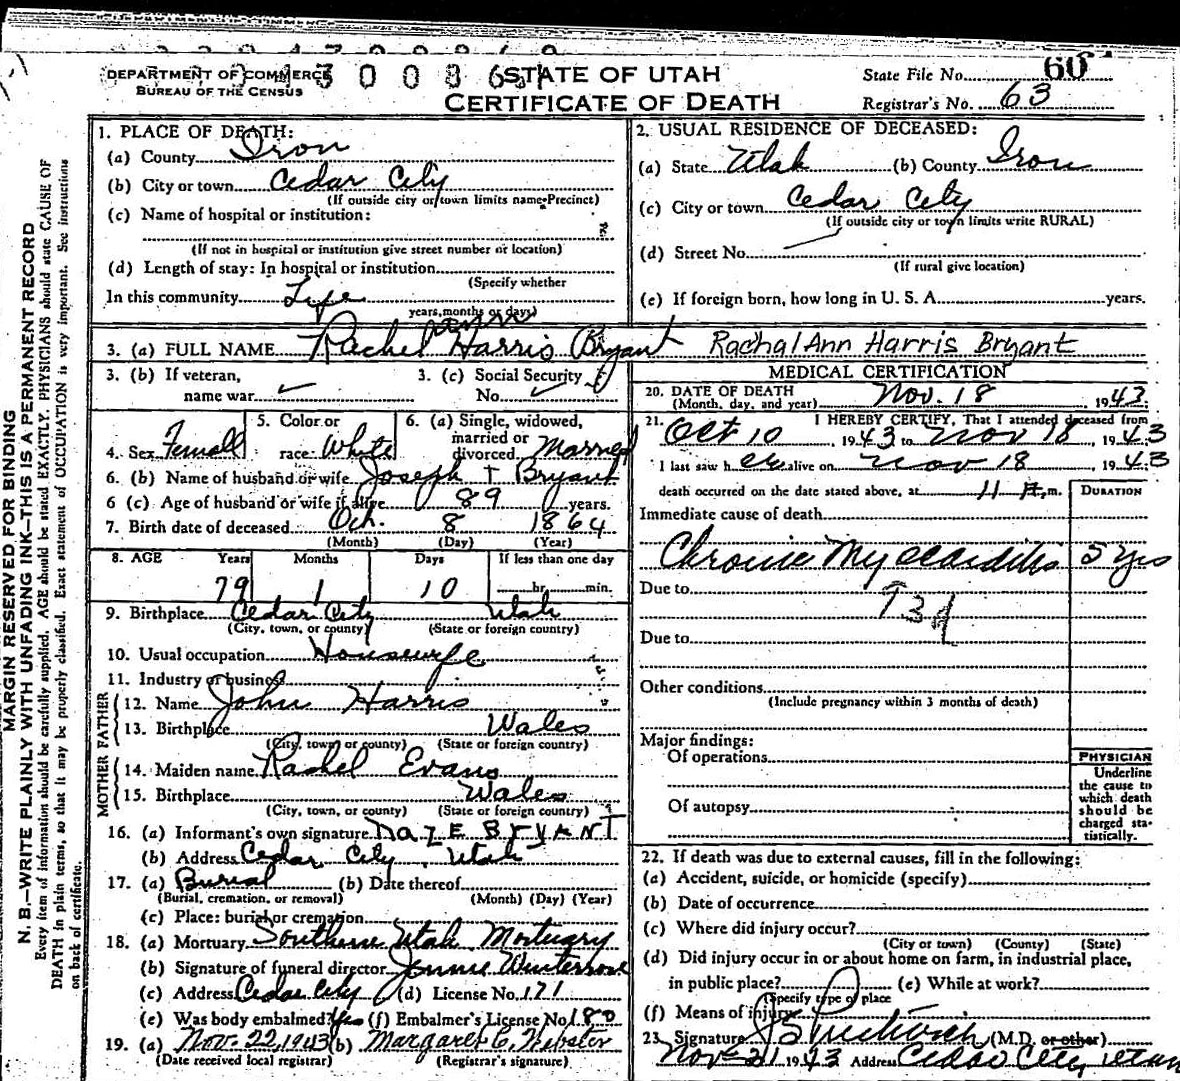 DEPARTMENT OF COMMERCE
BUREAU OF THE CENSUS
STATE OF UTAH
CERTIFICATE OF DEATH
State File No. 60
Registrar's No. 63
MARGIN RESERVED FOR BINDING
N. B.—WRITE PLAINLY WITH UNFADING INK—THIS IS A PERMANENT RECORD
Every item of information should be carefully supplied. AGE should be stated EXACTLY. PHYSICIANS should state CAUSE OF
DEATH in plain terms, so that it may be properly classified. Exact statement of OCCUPATION is very important. See instructions
on back of certificate.
1. PLACE OF DEATH:
(a) County Iron
(b) City or town Cedar City
(If outside city or town limits name Precinct)
(c) Name of hospital or institution:
(If not in hospital or institution give street number or location)
(d) Length of stay: In hospital or institution
(Specify whether
In this community Life
years, months or days)
2. USUAL RESIDENCE OF DECEASED:
(a) State Utah (b) County Iron
(c) City or town Cedar City
(If outside city or town limits write RURAL)
(d) Street No.
(If rural give location)
(e) If foreign born, how long in U. S. A. years.
3. (a) FULL NAME Rachel Ann Harris Bryant Rachal Ann Harris Bryant
3. (b) If veteran,
name war
3. (c) Social Security
No.
4. Sex Female
5. Color or
race White
6. (a) Single, widowed,
married or
divorced Married
6. (b) Name of husband or wife Joseph T Bryant
6 (c) Age of husband or wife if alive 89 years.
7. Birth date of deceased Oct. 8 1864
(Month) (Day) (Year)
8. AGE Years Months Days If less than one day
79 1 10 hr. min.
9. Birthplace Cedar City Utah
(City, town, or county) (State or foreign country)
10. Usual occupation Housewife
11. Industry or business
FATHER
12. Name John Harris
13. Birthplace Wales
(City, town or county) (State or foreign country)
MOTHER
14. Maiden name Rachel Evans
15. Birthplace Wales
(City, town, or county) (State or foreign country)
16. (a) Informant's own signature BRYANT
(b) Address Cedar City, Utah
17. (a) Burial (b) Date thereof
(Burial, cremation, or removal) (Month) (Day) (Year)
(c) Place: burial or cremation
18. (a) Mortuary Southern Utah Mortuary
(b) Signature of funeral director Jennie Winterrose
(c) Address Cedar City (d) License No. 171
(e) Was body embalmed? Yes (f) Embalmer's License No. 180
19. (a) Nov. 22, 1943 (b) Margaret C. Webster
(Date received local registrar) (Registrar's signature)
MEDICAL CERTIFICATION
20. DATE OF DEATH Nov. 18 1943
(Month, day, and year)
21. I HEREBY CERTIFY, That I attended deceased from
Oct 10 1943 to Nov 18, 1943
I last saw her alive on Nov 18 1943
death occurred on the date stated above, at 11 P.m.
DURATION
Immediate cause of death
Chronic Myocarditis 5 yrs
Due to 93d
Due to
Other conditions
(Include pregnancy within 3 months of death)
Major findings:
Of operations
Of autopsy
PHYSICIAN
Underline
the cause to
which death
should be
charged sta-
tistically.
22. If death was due to external causes, fill in the following:
(a) Accident, suicide, or homicide (specify)
(b) Date of occurrence
(c) Where did injury occur?
(City or town) (County) (State)
(d) Did injury occur in or about home on farm, in industrial place,
in public place? (e) While at work?
(Specify type of place
(f) Means of injury
23. Signature (M.D. or other)
Nov 21 1943 Address Cedar City, Utah